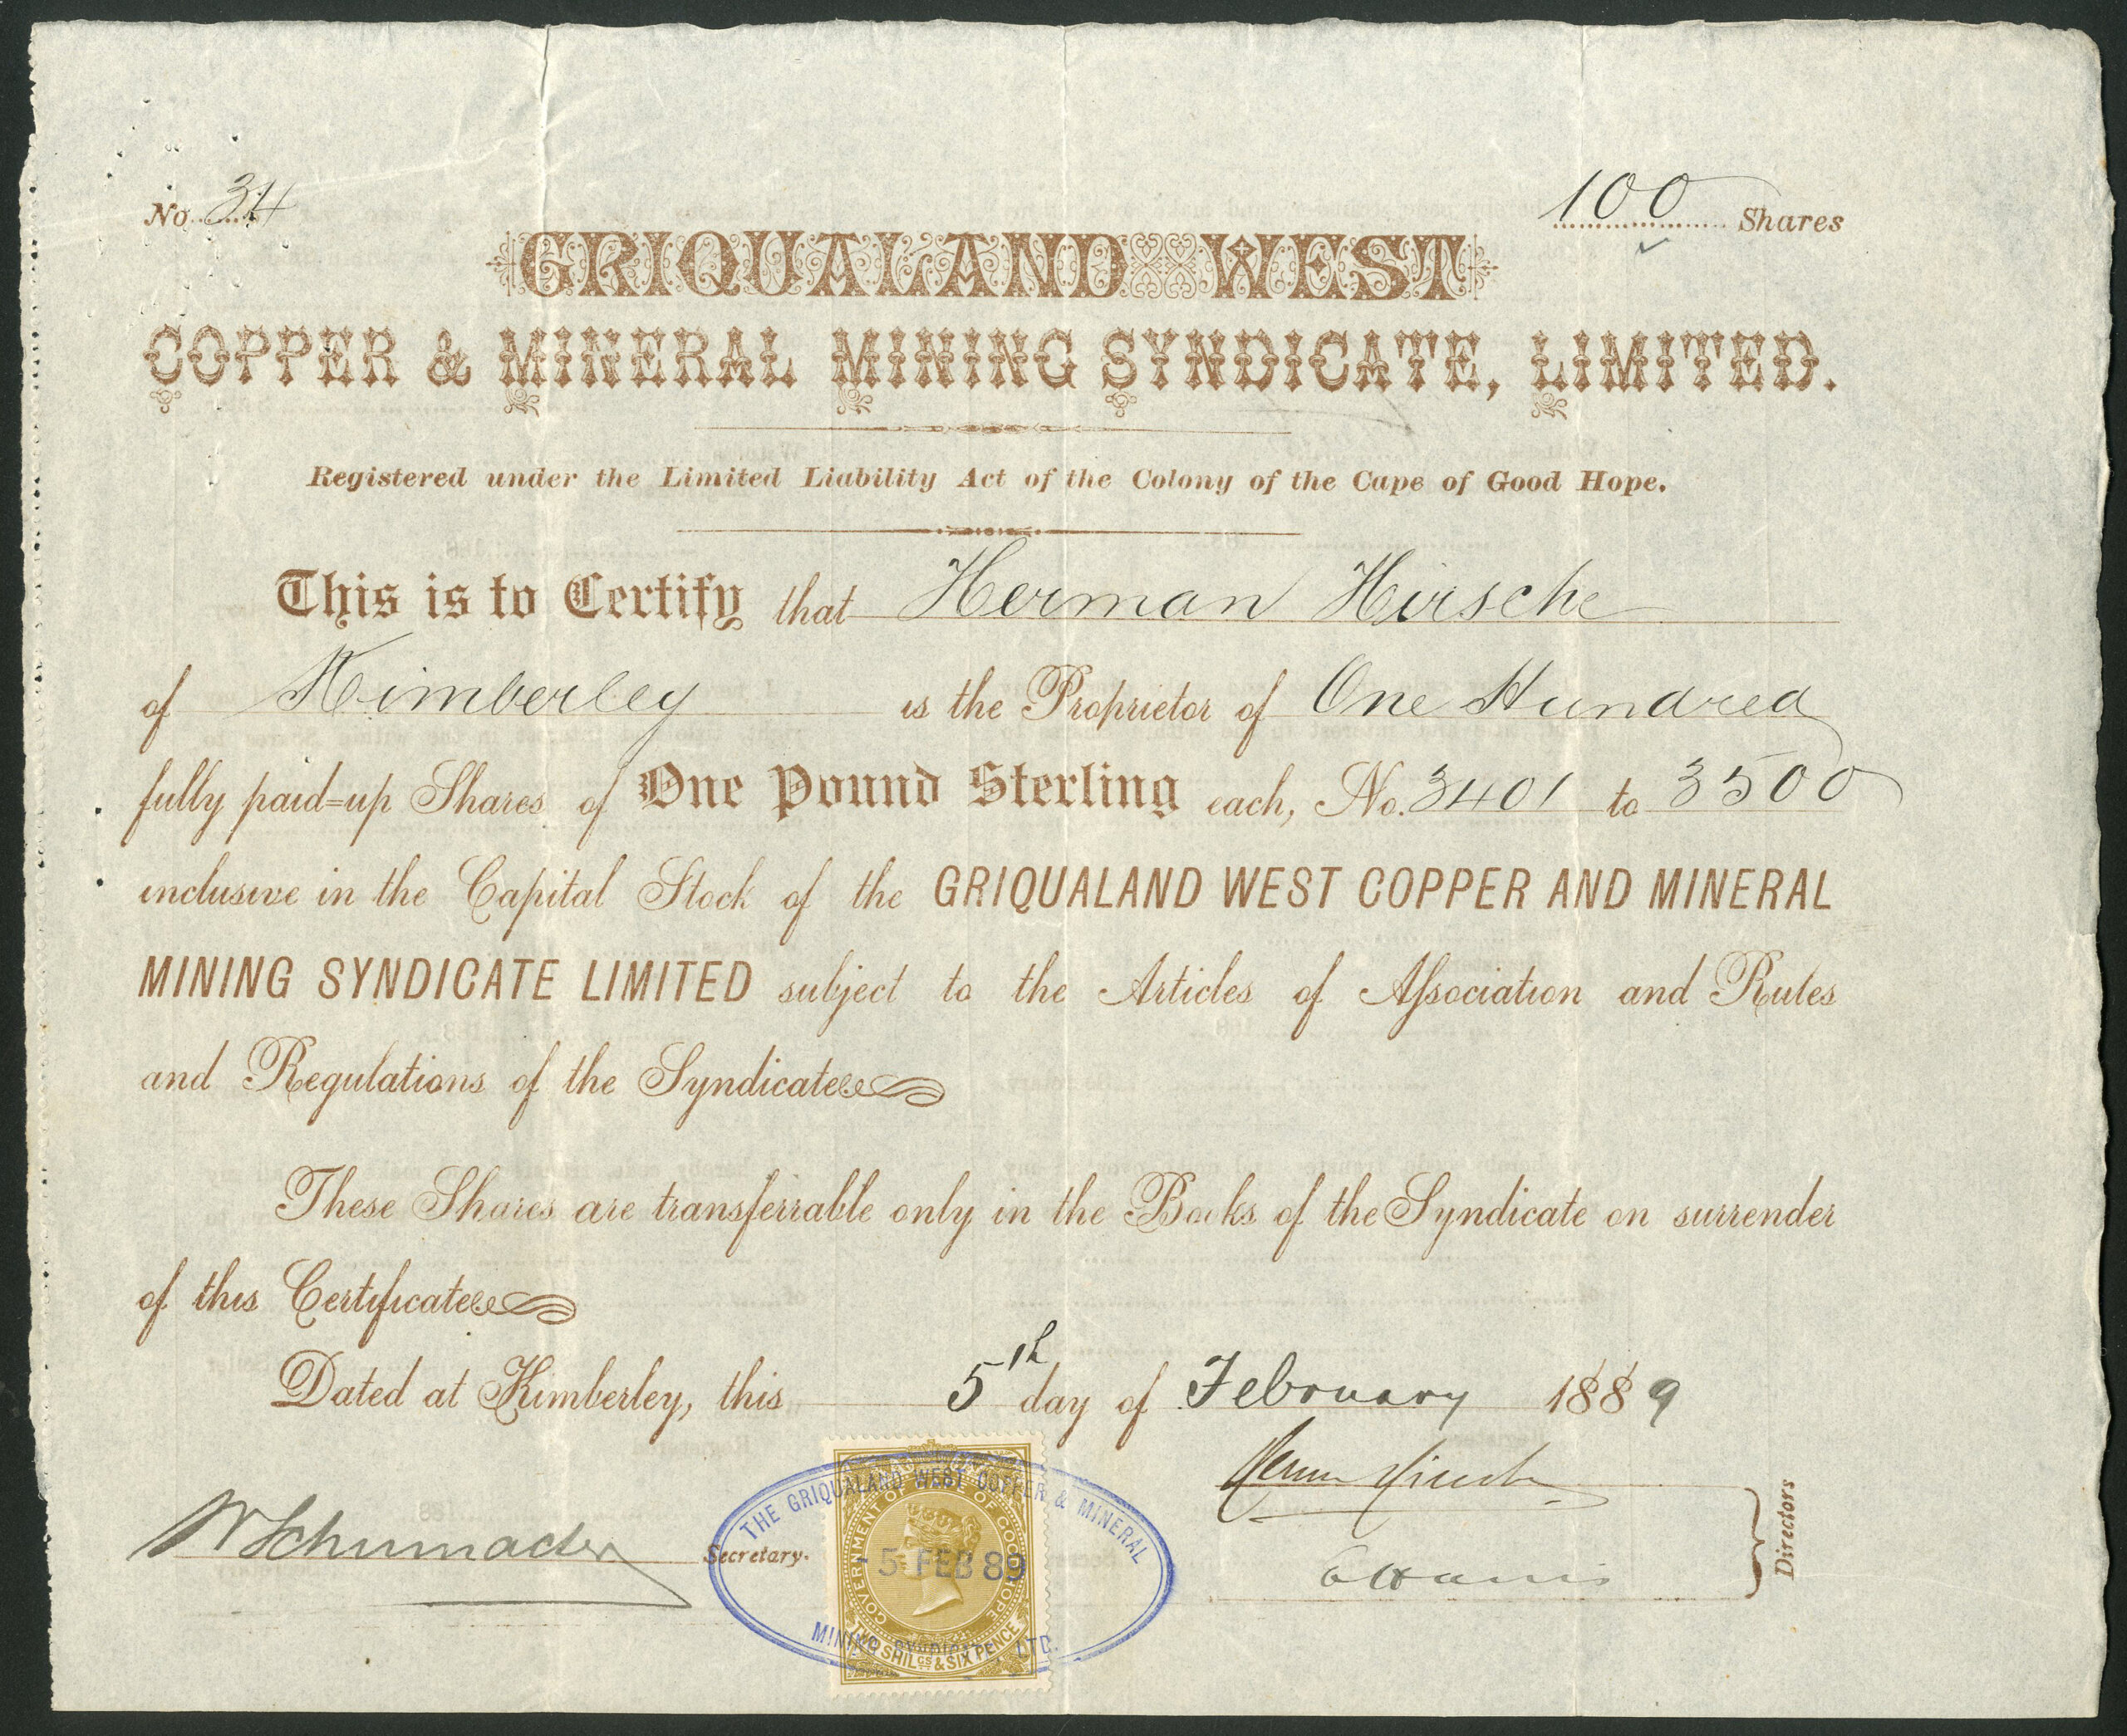 No. 34
100 Shares
GRIQUALAND WEST
COPPER & MINERAL MINING SYNDICATE, LIMITED.
Registered under the Limited Liability Act of the Colony of the Cape of Good Hope.
This is to Certify that Herman Hirsche
of Kimberley is the Proprietor of One Hundred
fully paid=up Shares of One Pound Sterling each, No. 3401 to 3500
inclusive in the Capital Stock of the GRIQUALAND WEST COPPER AND MINERAL
MINING SYNDICATE LIMITED subject to the Articles of Aſsociation and Rules
and Regulations of the Syndicate
These Shares are transferrable only in the Books of the Syndicate on surrender
of this Certificate
Dated at Kimberley, this 5th day of February 1889
W Schumacher Secretary.
Directors
THE GRIQUALAND WEST COPPER & MINERAL
MINING SYNDICATE LTD.
- 5 FEB 89
GOVERNMENT OF CAPE OF GOOD HOPE
TWO SHILGS & SIX PENCE